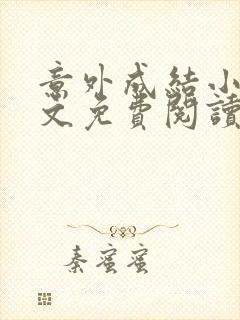 意外成結小
文免費閱讀
秦蜜蜜